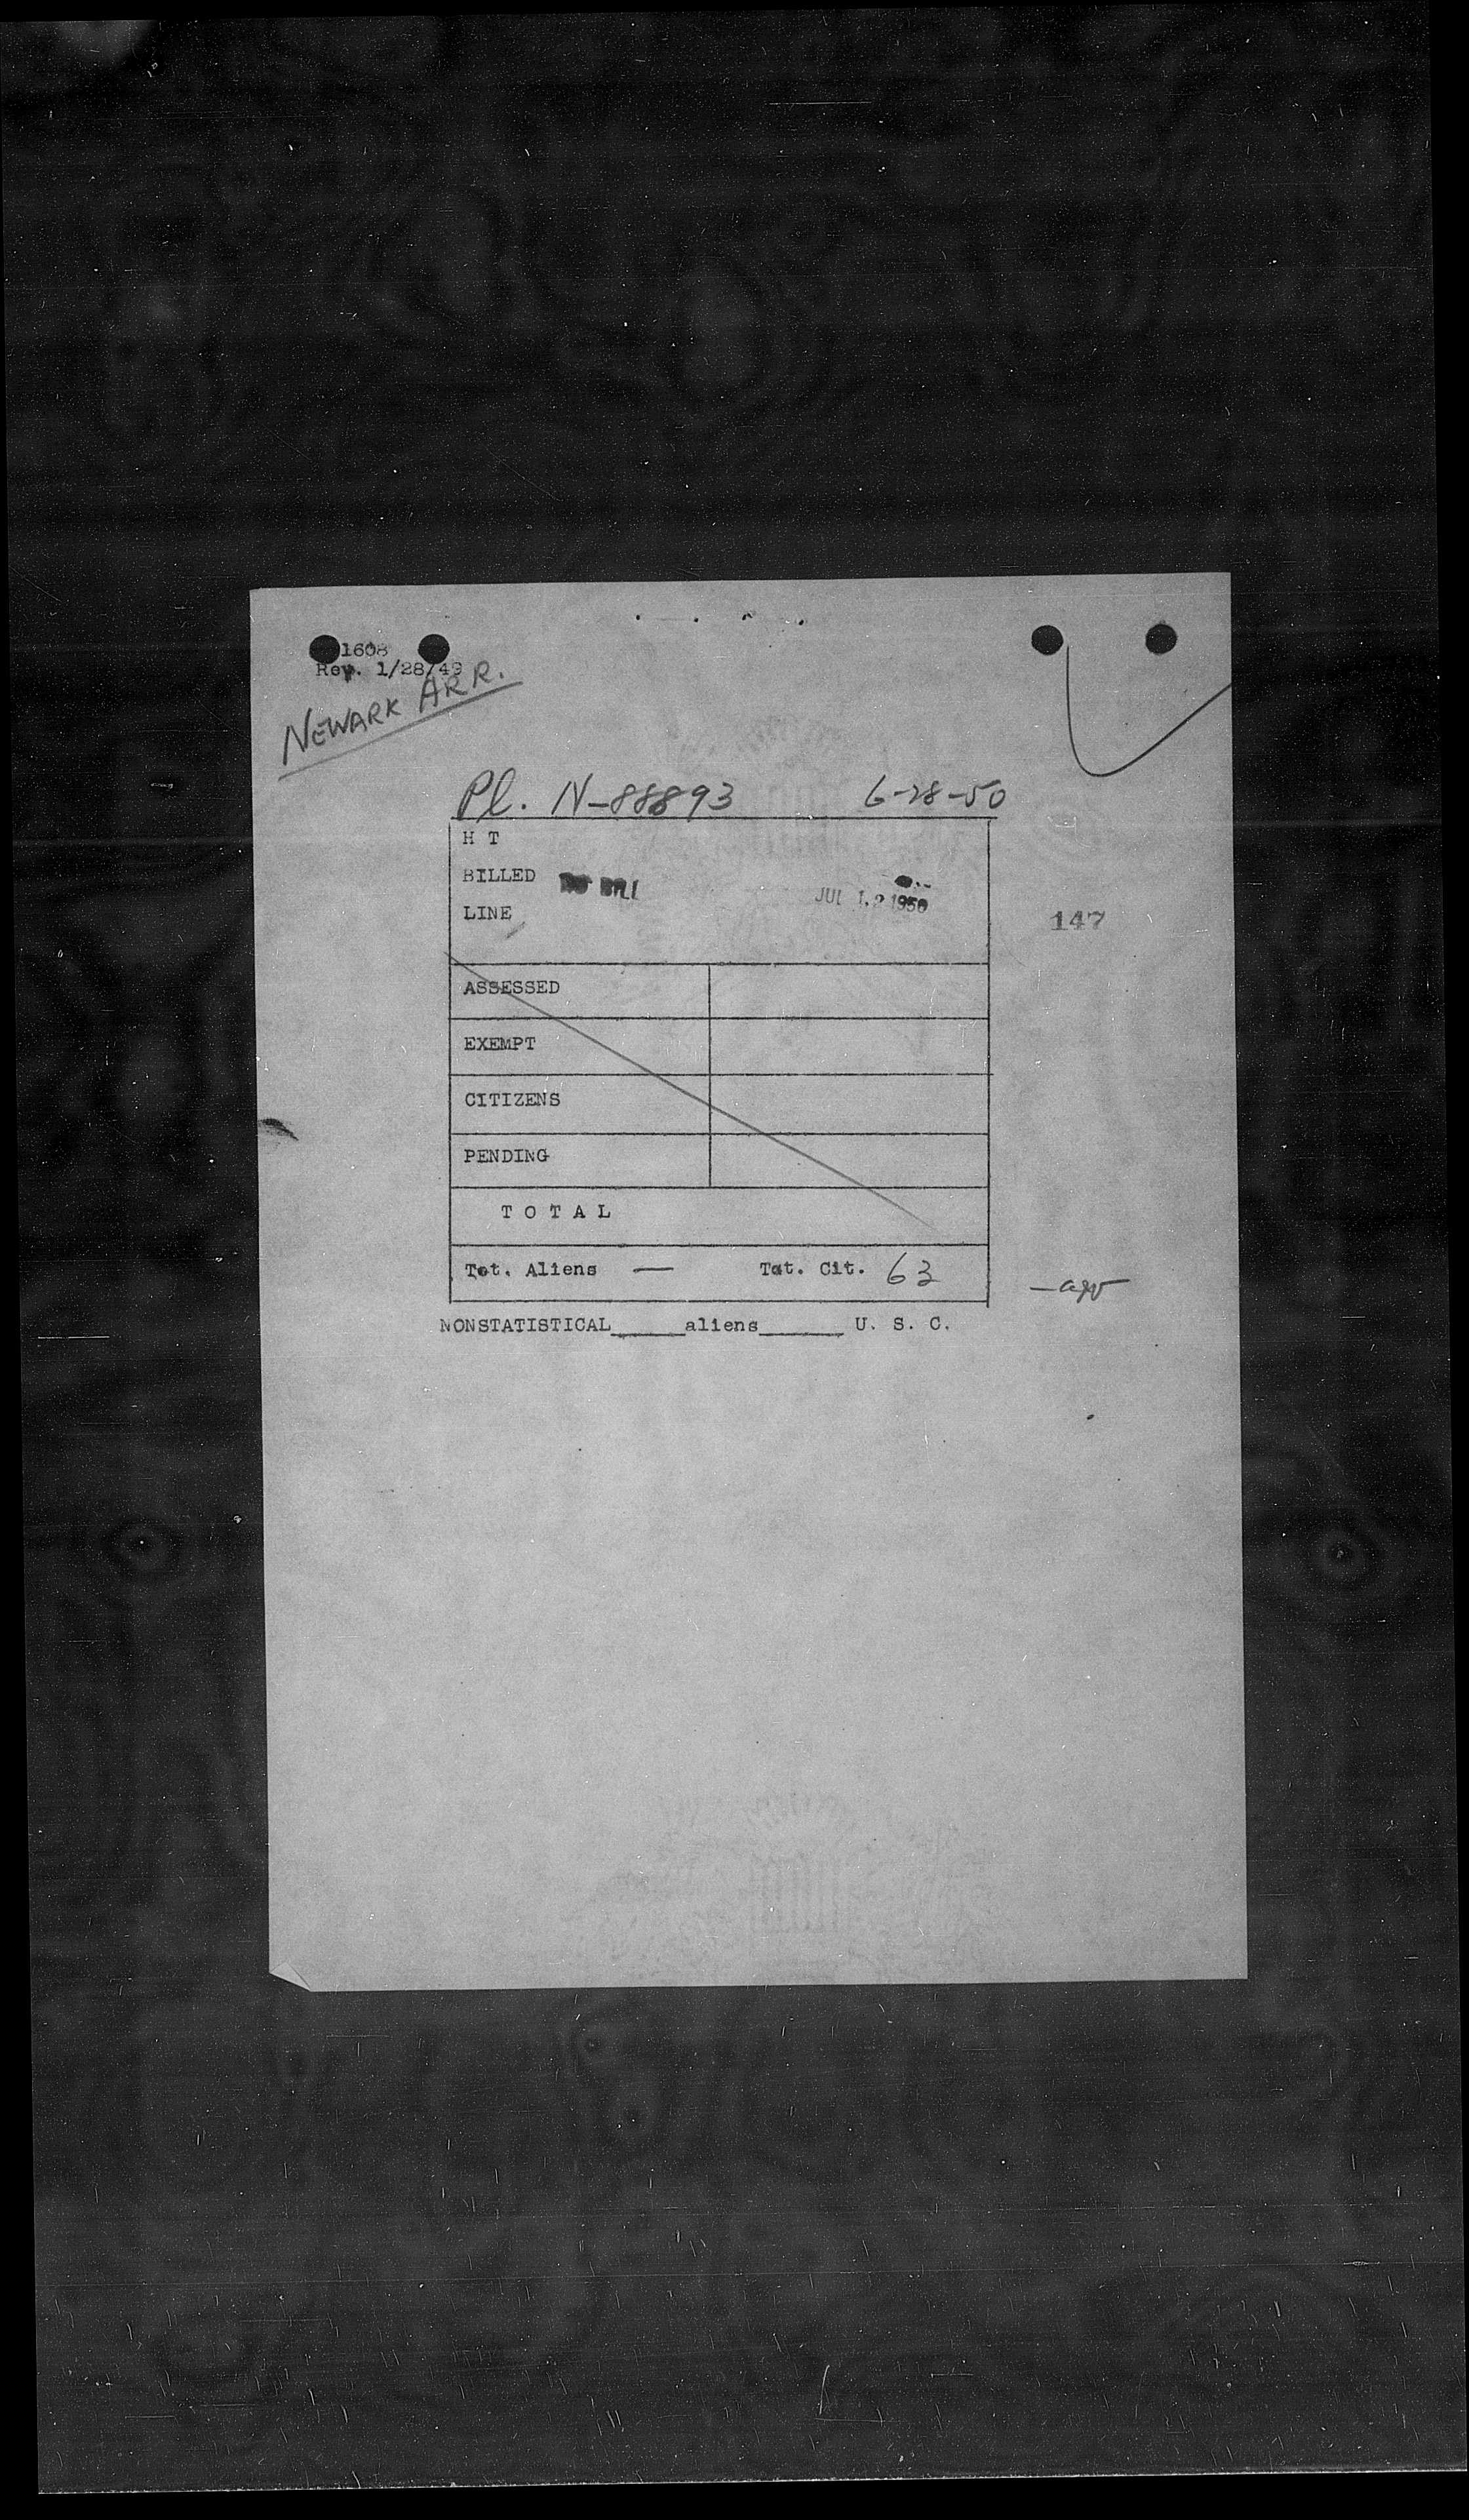 1608
Rev. 1/28/49
NEWARK ARR.
Pl. N-88893 6-28-50
H T
BILLED NO BILL JUL 12 1950
LINE
147
ASSESSED
EXEMPT
CITIZENS
PENDING
T O T A L
Tot. Aliens — Tot. Cit. 63
NONSTATISTICAL_____aliens______ U. S. C.